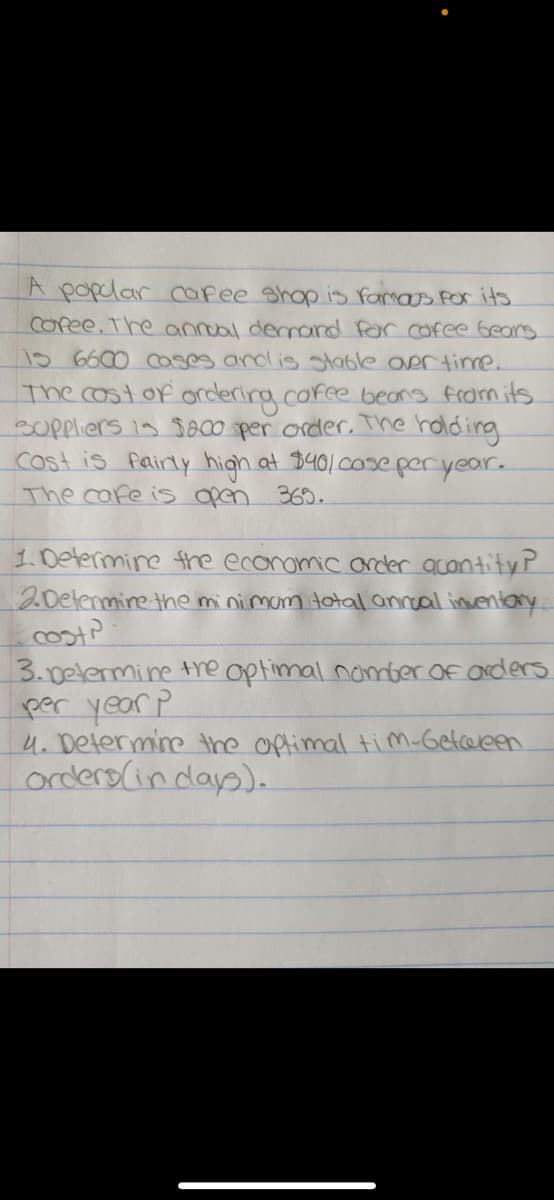 A popular cofee shop is famous for its
cofee. The annual demand for cofee beans
is 6600 cases and is stable over time.
The cost of ordering cofee beans from its
suppliers is $800 per order. The holding
cost is fairly high at $40/case per year.
The cafe is open 365.
1. Determine the economic order quantity?
2. Determine the minimum total annual inventory
cost?
3. Determine the optimal number of orders
per year?
4. Determine the optimal tim-between
orders (in days).